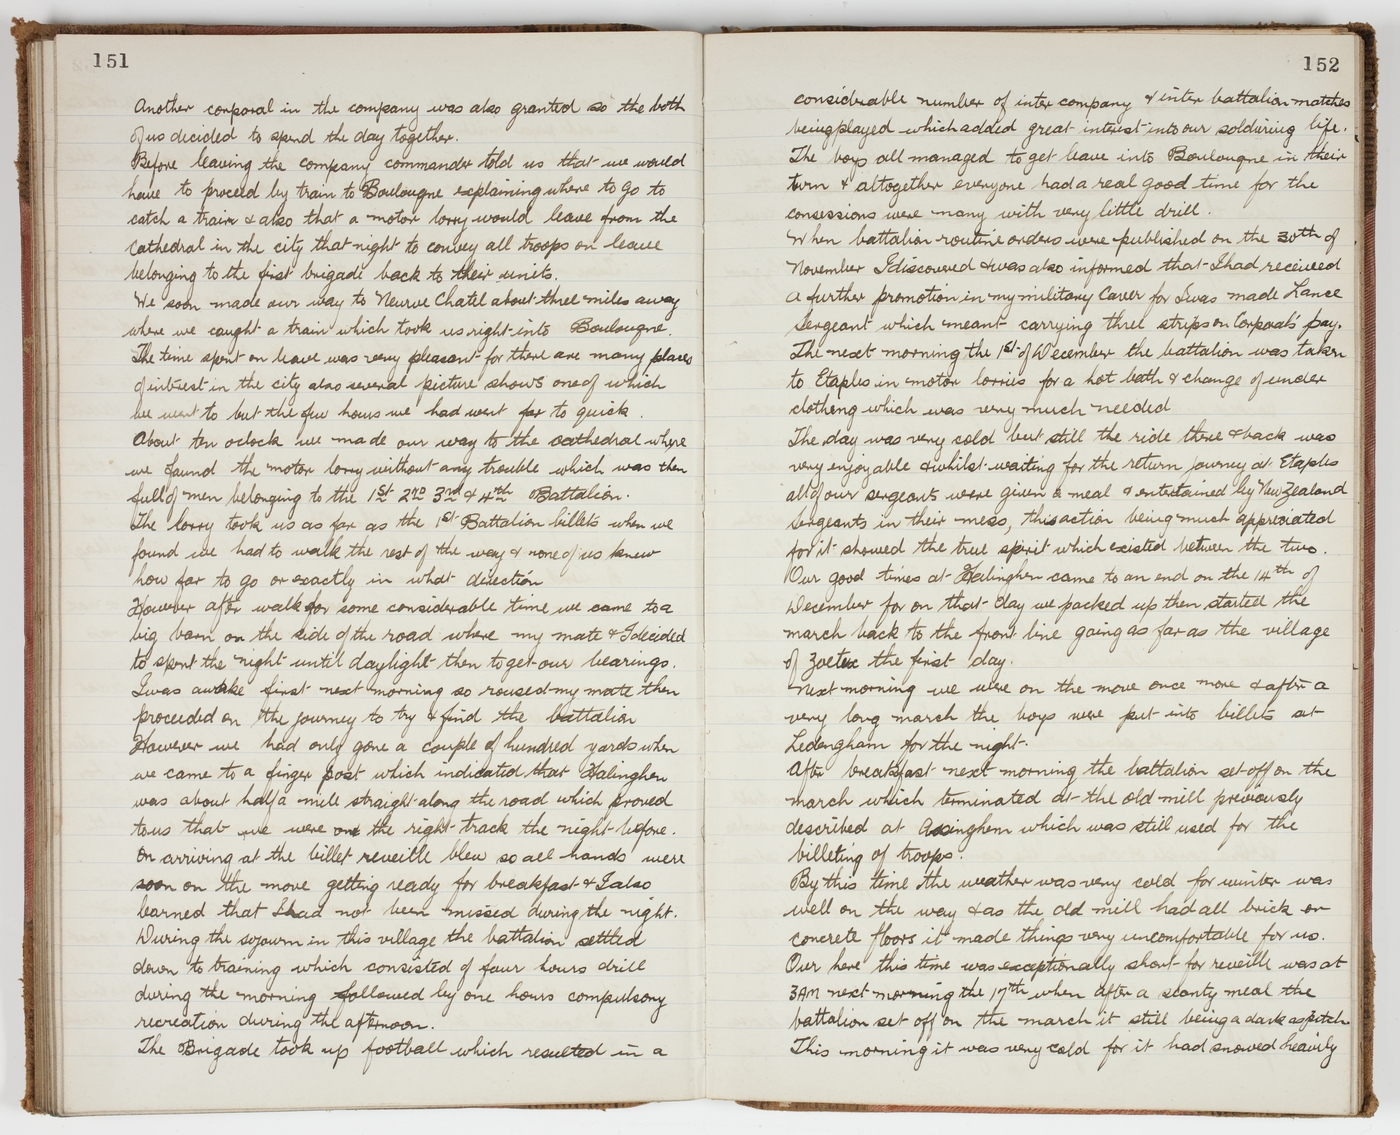 151
Another corporal in the company was also granted so the both
of us decided to spend the day together.
Before leaving the company commander told us that we would
have to proceed by train to Boulougne explaining where to go to
catch a train & also that a motor lorry would leave from the
Cathedral in the city that night to convey all troops on leave
belonging to the first brigade back to their units.
We soon made our way to Neurve Chatel about three miles away
where we caught a train which took us right into Boulougne.
The time spent on leave was very pleasant for there are many places
of interest in the city also several picture shows one of which
we went to but the few hours we had went far to quick.
About ten oclock we made our way to the cathedral where
we found the motor lorry without any trouble which was then
full of men belonging to the 1st 2nd 3rd & 4th Battalion.
The lorry took us as far as the 1st Battalion billets when we
found we had to walk the rest of the way & none of us knew
how far to go or exactly in what direction
However after walk for some considerable time we came to a
big barn on the side of the road where my mate & I decided
to spent the night until daylight then to get our bearings.
I was awake first next morning so roused my mate then
proceeded on the journey to try & find the battalion
However we had only gone a couple of hundred yards when
we came to a finger post which indicated that Halinghen
was about half a mile straight along the road which proved
to us that we were on the right track the night before.
On arriving at the billet reveille blew so all hands were
soon on the move getting ready for breakfast & I also
learned that I had not been missed during the night.
During the sojourn in this village the battalion settled
down to training which consisted of four hours drill
during the morning followed by one hours compulsory
recreation during the afternoon.
The Brigade took up football which resulted in a
152
considerable number of inter company & inter battalion matches
being played which added great interest into our soldiering life.
The boys all managed to get leave into Boulougne in their
turn & altogether everyone had a real good time for the
consessions were many with very little drill.
When battalion routine orders were published on the 30th of
November I discovered & was also informed that I had received
a further promotion in my military Career for I was made Lance
Sergeant which meant carrying three strips on Corporals' pay.
The next morning the 1st of December the battalion was taken
to Etaples in motor lorries for a hot bath & change of under
clothing which was very much needed
The day was very cold but still the ride there & back was
very enjoyable & whilst waiting for the return journey at Etaples
all of our sergeants were given a meal & entertained by New Zealand
Sergeants in their mess, this action being much appreciated
for it showed the true spirit which existed between the two.
Our good times at Halinghen came to an end on the 14th of
December for on that day we packed up then started the
march back to the front line going as far as the village
of Zoetux the first day.
Next morning we were on the move once more & after a
very long march the boys were put into billets at
Ledengham for the night.
After breakfast next morning the battalion set off on the
march which terminated at the old mill previously
described at Assinghem which was still used for the
billeting of troops.
By this time the weather was very cold for winter was
well on the way & as the old mill had all brick or
concrete floors it made things very uncomfortable for us.
Our here this time was exceptionally short for reveille was at
3AM next morning the 17th when after a scanty meal the
battalion set off on the march it still being a dark as pitch
This morning it was very cold for it had snowed heavily